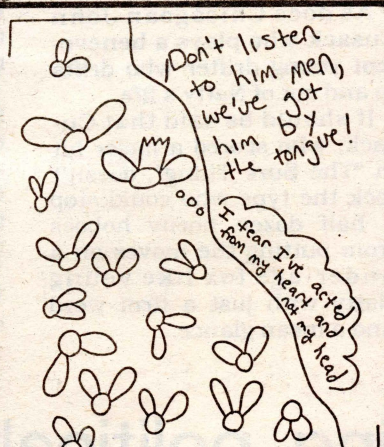 Don't listen
to him men,
we've got
him by
the tongue!
I fear I've acted
from my heart and
not my head